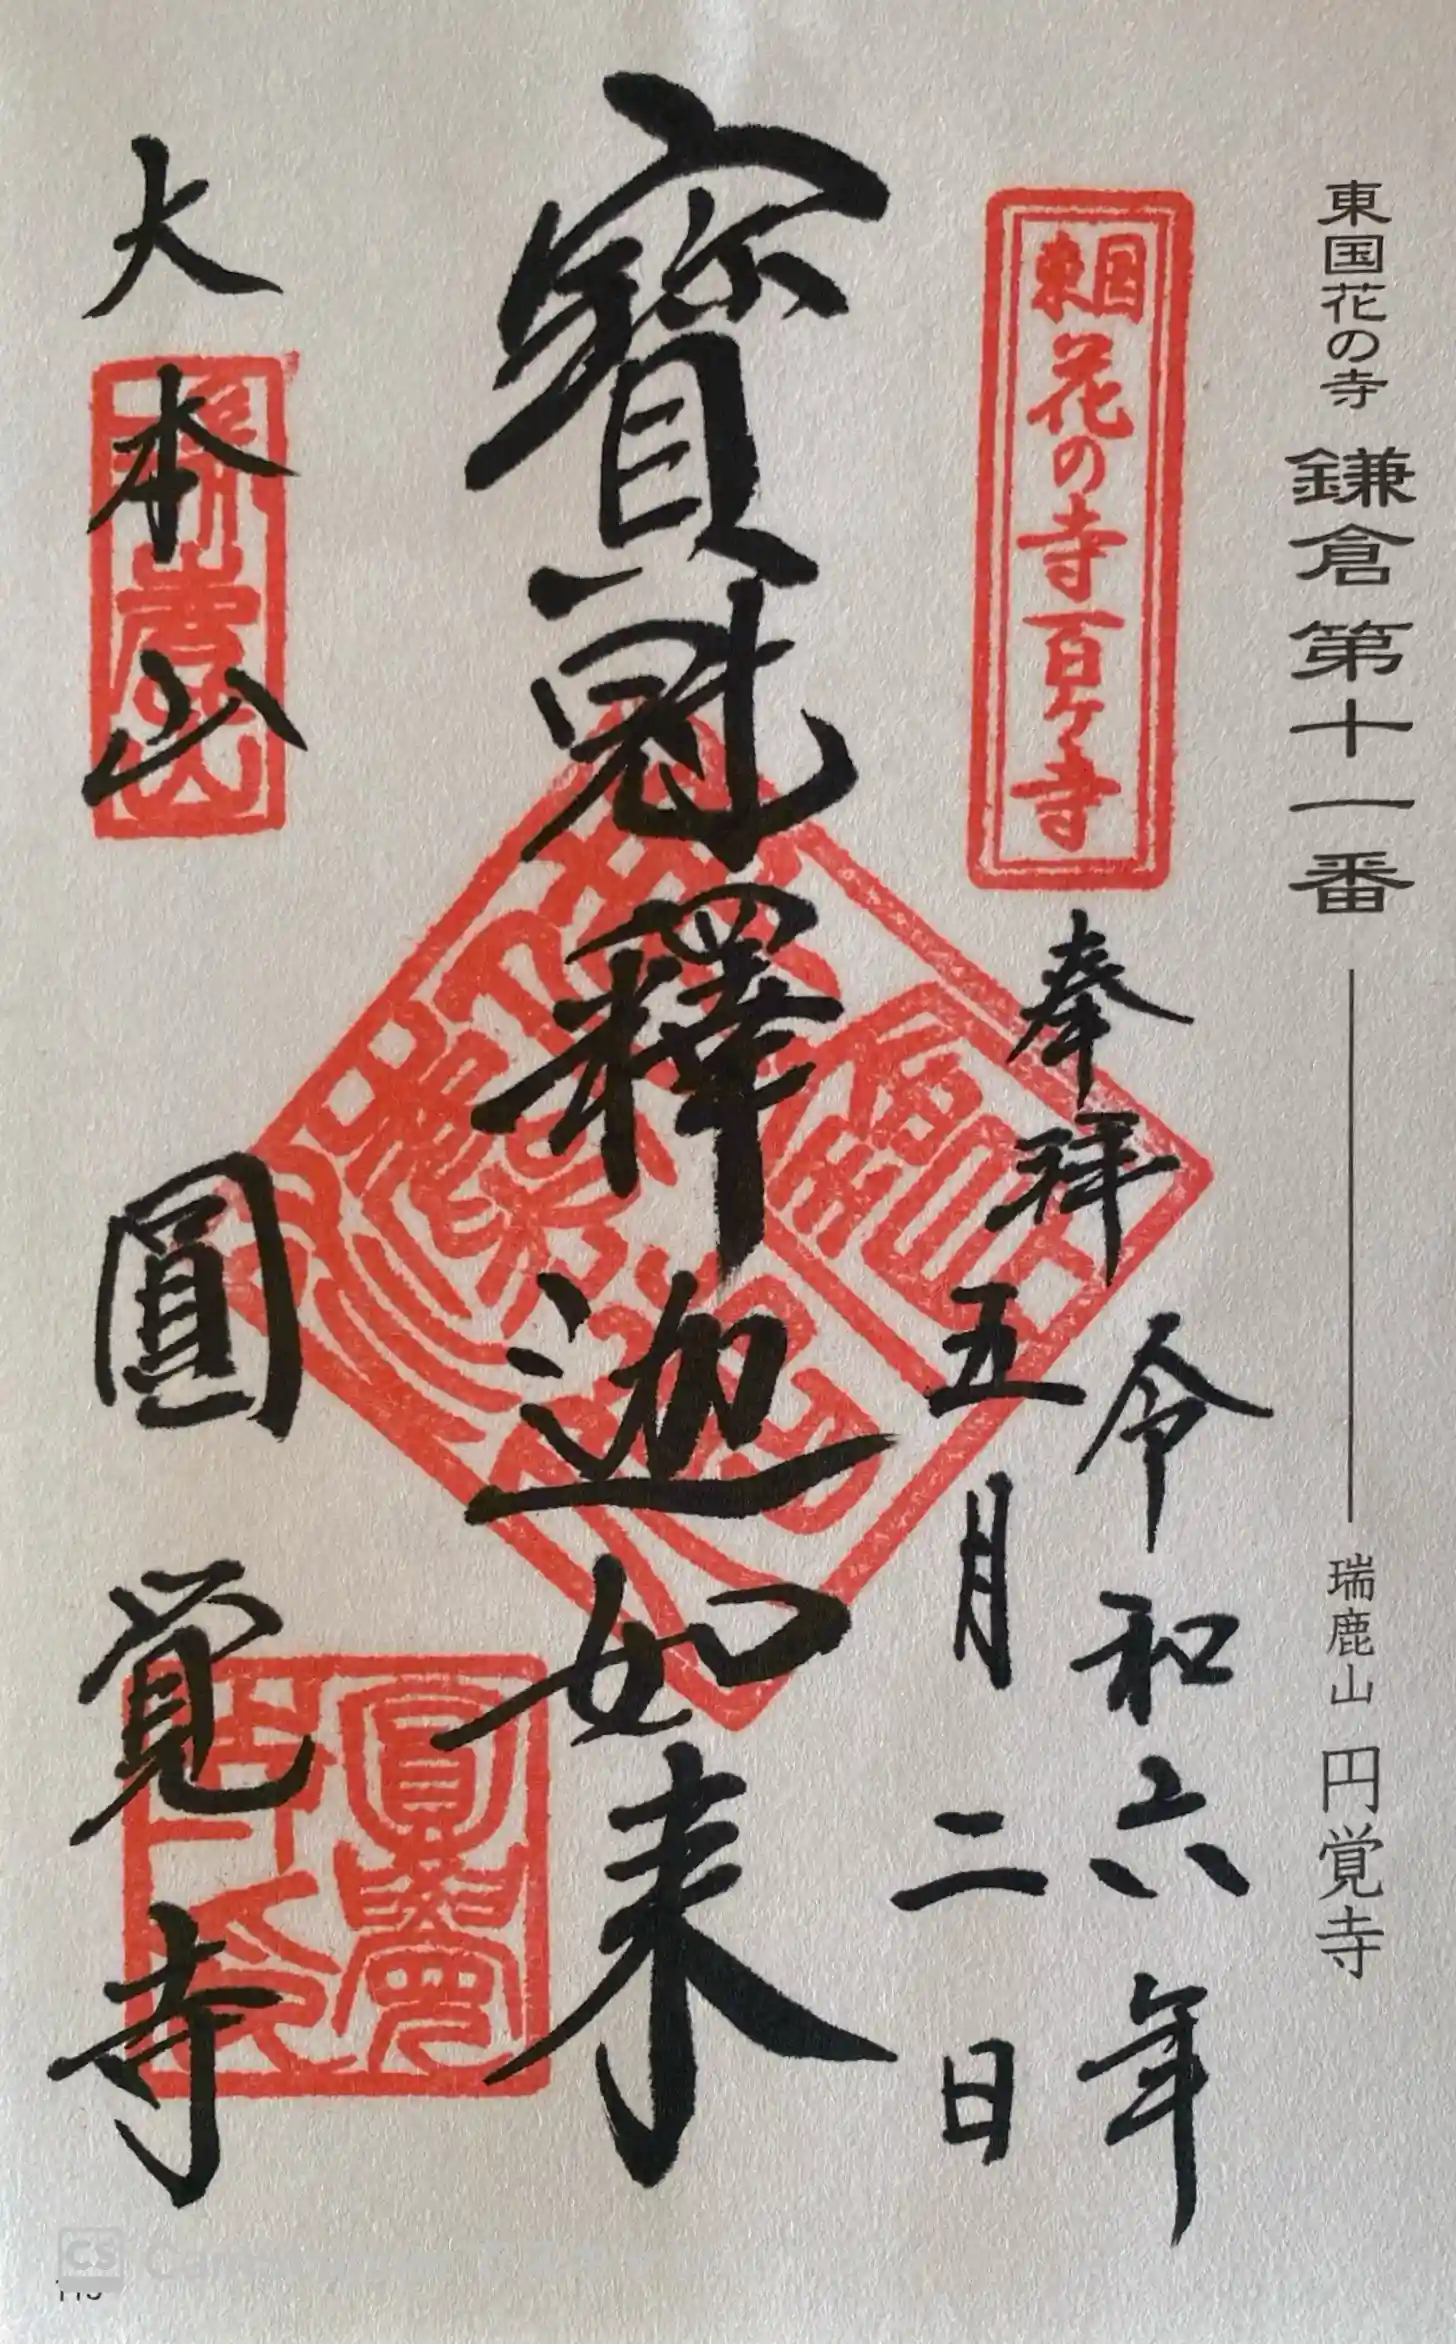 東国花の寺 鎌倉第十一番 瑞鹿山 円覚寺
東国花の寺百ヶ寺
奉拝
令和六年
五月二日
寳冠釋迦如来
大本山
圓覺寺
圓覺
CS